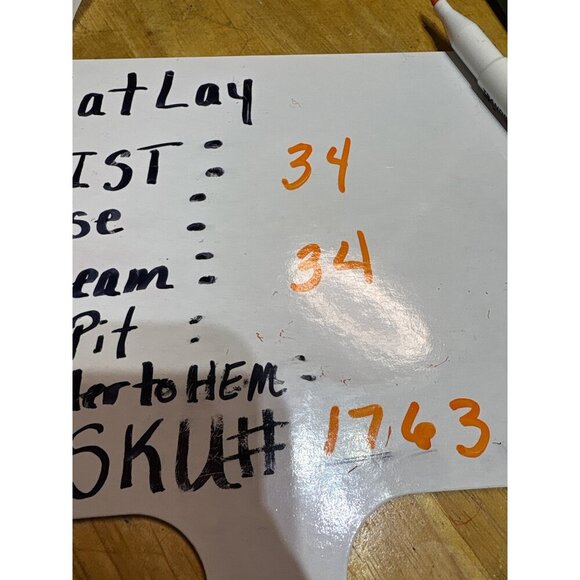 at Lay
IST : 34
se :
eam : 34
Pit :
der to HEM :
SKU# 1763